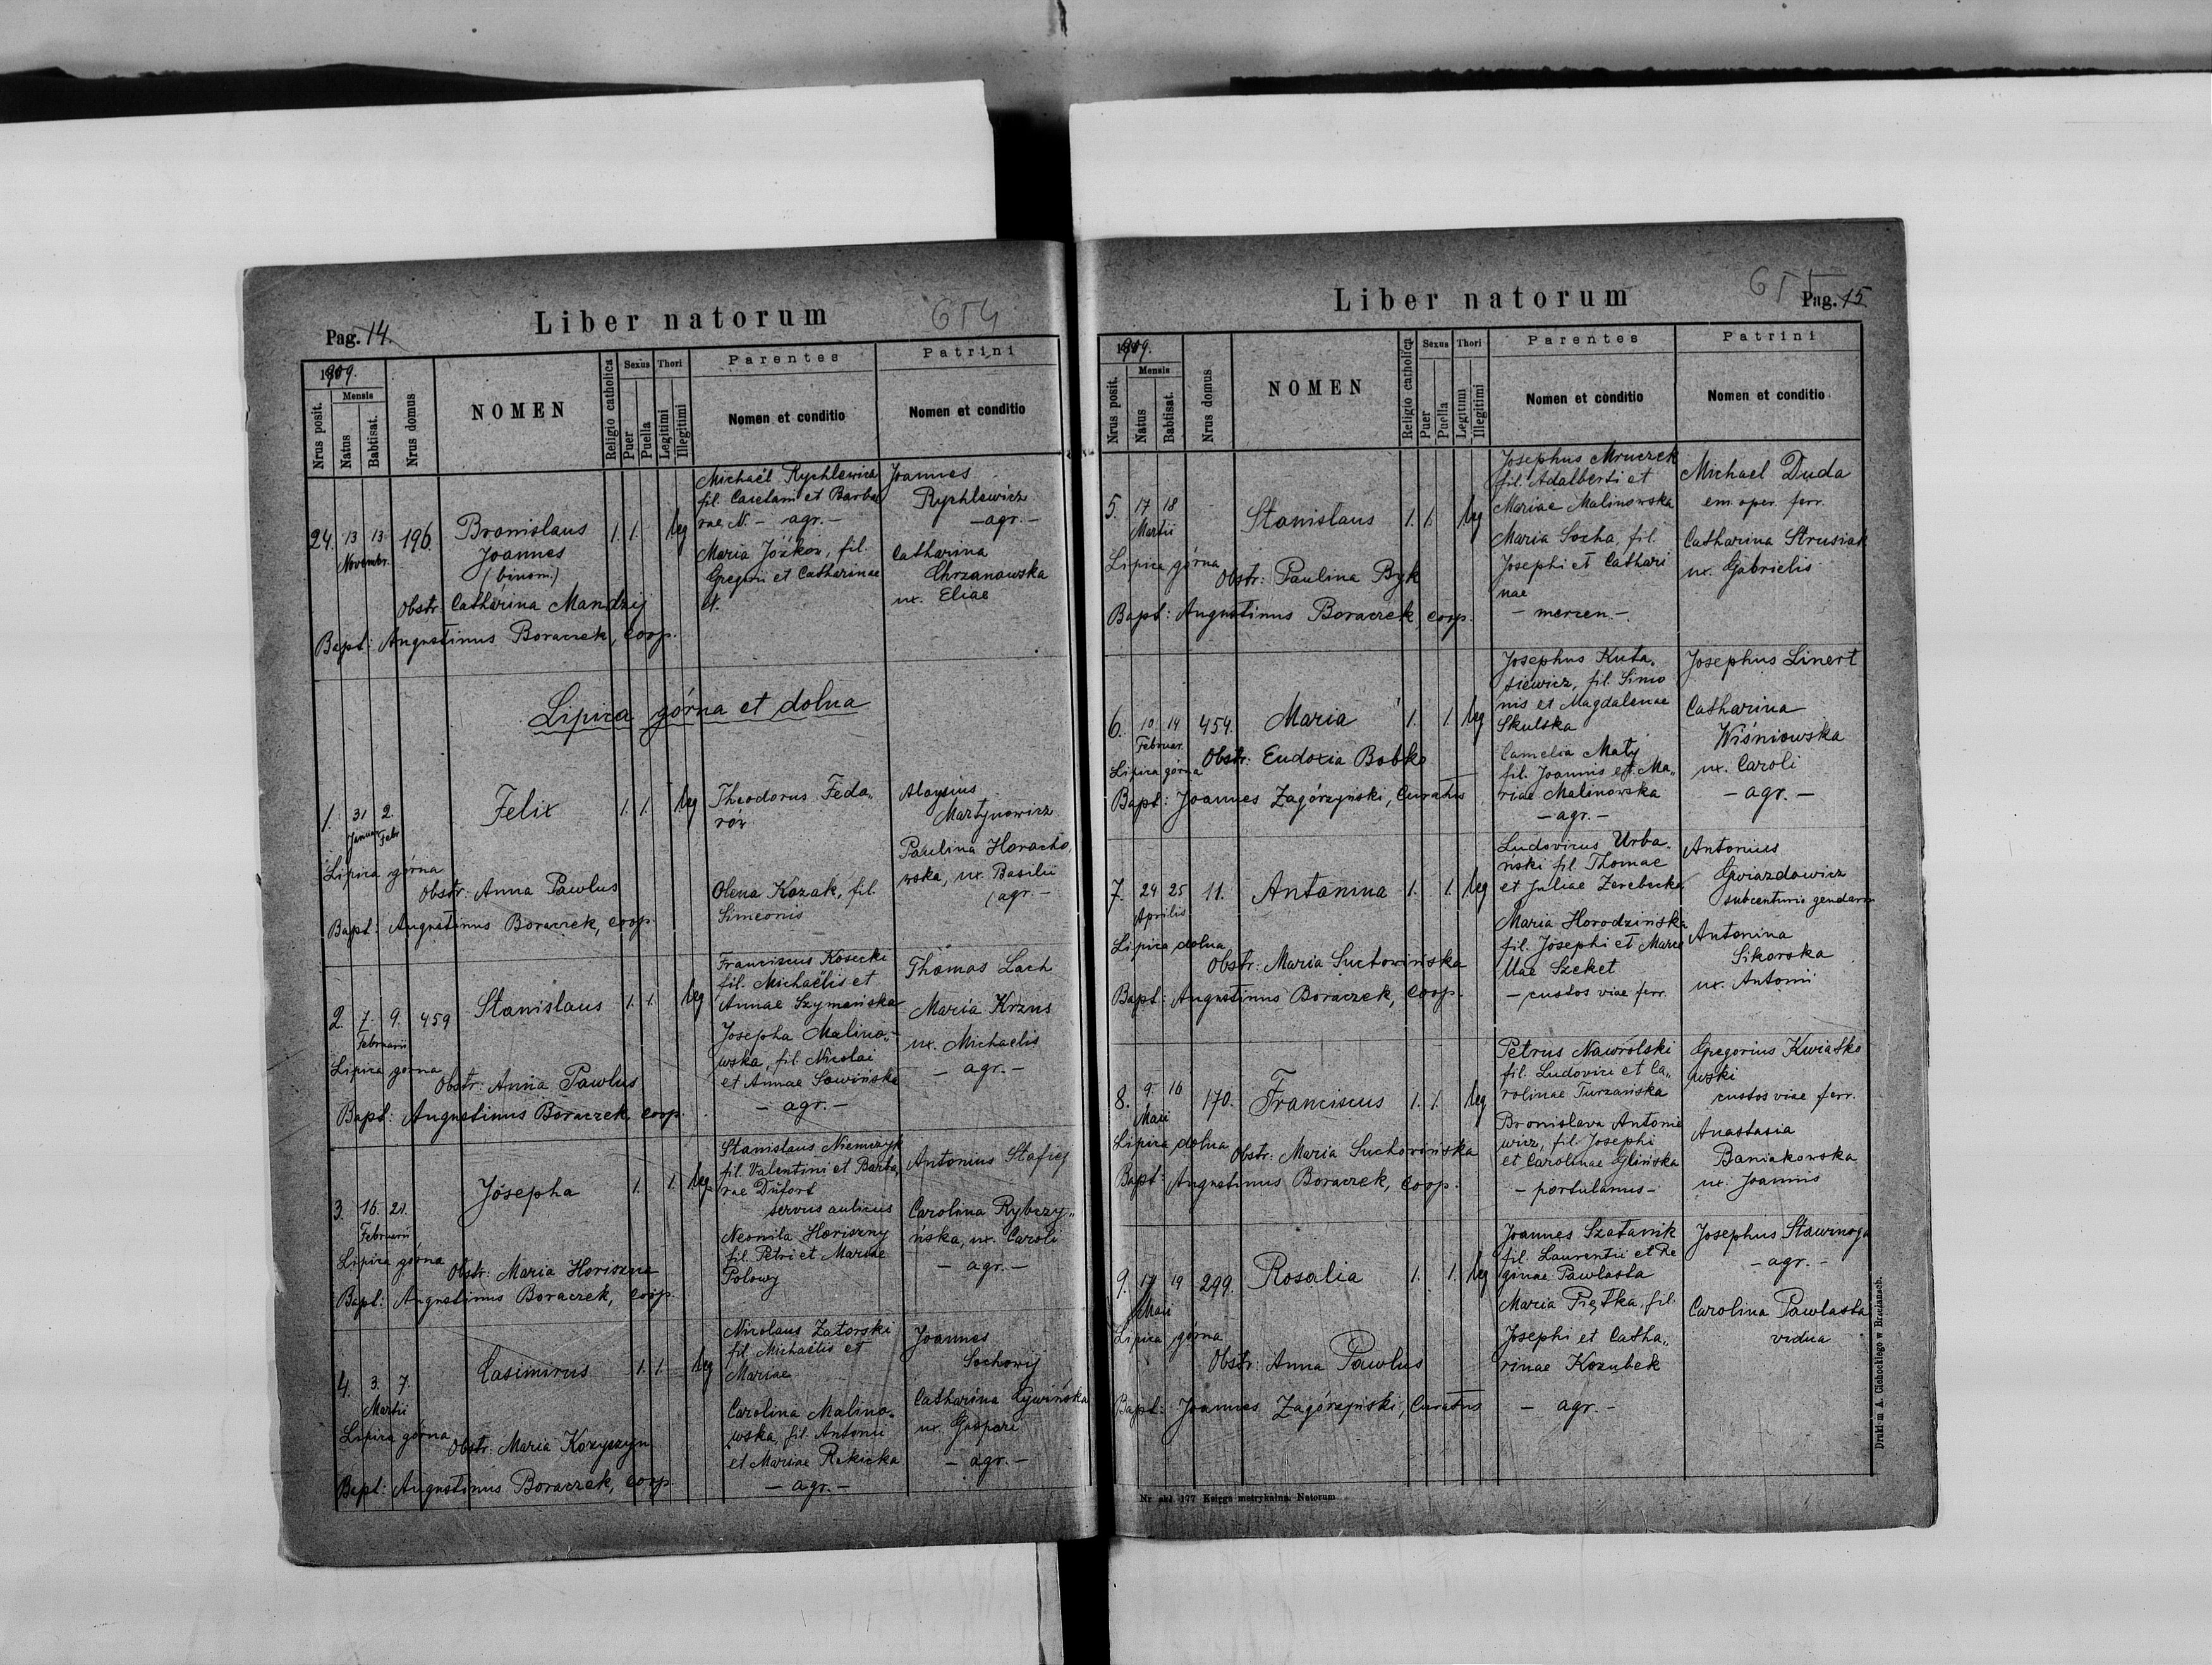 Liber natorum
654
Pag. 14.
1909.
Nrus posit.
Mensis
Natus
Babtisat.
Nrus domus
NOMEN
Religio catholica
Sexus
Puer
Puella
Thori
Legitimi
Illegitimi
Parentes
Nomen et conditio
Patrini
Nomen et conditio
24. 13 13 196. Bronislaus 1. 1. leg
Novembr. Joannes
(binom.)
Obstr. Catharina Mandzij
Bapt: Augustinus Boraczek, coop.
Michaël Rychlewicz
fil. Caietani et Barba
rae N. - agr. -
Maria Józków, fil.
Gregorii et Catharinae
et.
Joannes
Rychlewicz
- agr. -
Catharina
Chrzanowska
ux. Eliae
Lipica górna et dolna
1. 31 2. Felix 1. 1. leg
Januar Febr
Lipica górna
Obstr: Anna Pawlus
Bapt: Augustinus Boraczek, coop.
Theodorus Fedo„
rów
Olena Kozak, fil.
Simeonis
Aloysius
Martynowicz
Paulina Horacho„
wska, ux. Basilii
agr. -
2. 7. 9. 459 Stanislaus 1. 1. leg
Februarii
Lipica górna
Obstr: Anna Pawlus
Bapt: Augustinus Boraczek coop.
Franciscus Kosecki
fil. Michaëlis et
Annae Szymańska
Josepha Malino„
wska, fil. Nicolai
et Annae Sowińska
- agr. -
Thomas Lach
Maria Krzus
ux. Michaelis
- agr. -
3. 16. 21. Josepha 1. 1. leg
Februarii
Lipica górna
Obstr: Maria Horiszna
Bapt: Augustinus Boraczek, coop.
Stanislaus Niemczyk
fil. Valentini et Barba„
rae Dufort
servus aulicus
Neonila Horiszny
fil. Petri et Mariae
Polowy
Antonius Stafiej
Carolina Rybczy„
ńska, ux. Caroli
- agr. -
4. 3. 7. Casimirus 1. 1. leg
Martii
Lipica górna
Obstr: Maria Kozyszyn
Bapt: Augustinus Boraczek, coop.
Nicolaus Zatorski
fil. Michaëlis et
Mariae
Carolina Malino„
wska, fil. Antonii
et Mariae Rokicka
- agr. -
Joannes
Sochowij
Catharina Cywińska
ux. Gaspari
- agr. -
Liber natorum
Pag. 15.
1909.
Nrus posit.
Mensis
Natus
Babtisat.
Nrus domus
NOMEN
Religio catholica
Sexus
Puer
Puella
Thori
Legitimi
Illegitimi
Parentes
Nomen et conditio
Patrini
Nomen et conditio
5. 17 18 Stanislaus 1. 1. leg
Martii
Lipica górna
Obstr: Paulina Byk
Bapt: Augustinus Boraczek, coop.
Josephus Mruczek
fil. Adalberti et
Mariae Malinowska
Maria Socha, fil.
Josephi et Cathari
nae
- mercen. -
Michael Duda
em. oper. ferr.
Catharina Strusiak
ux. Gabrielis
6. 10 14 454. Maria 1. 1. leg
Februar.
Lipica górna
Obstr: Eudoxia Bobko
Bapt: Joannes Zagórzyński, Curatus
Josephus Kuta„
siewicz, fil. Simo
nis et Magdalenae
Skulska
Camelia Mały
fil. Joannis et Ma„
riae Malinowska
- agr. -
Josephus Linert
Catharina
Wiśniowska
ux. Caroli
- agr. -
7. 24 25 11. Antonina 1. 1. leg
Aprilis
Lipica dolna
Obstr: Maria Suchowińska
Bapt: Augustinus Boraczek, coop.
Ludovicus Urba„
ński fil. Thomae
et Juliae Zerebecka
Maria Horodzińska
fil. Josephi et Marce
llae Szeket
- custos viae ferr.
Antonius
Gwiazdowicz
subcenturio gendarm
Antonina
Sikorska
ux. Antonii
8. 9 16 170. Franciscus 1. 1. leg
Maii
Lipica dolna
Obstr: Maria Suchowińska
Bapt: Augustinus Boraczek, coop.
Petrus Nawrolski
fil. Ludovici et Ca„
rolinae Turzańska
Bronislava Antonie
wicz, fil. Josephi
et Carolinae Glińska
- portulanus -
Gregorius Kwiatko
wski
custos viae ferr.
Anastasia
Baniakowska
ux. Joannis
9. 17 19 299. Rosalia 1. 1. leg
Maii
Lipica górna
Obstr: Anna Pawlus
Bapt: Joannes Zagórzyński, Curatus
Joannes Szatanik
fil. Laurentii et Re
ginae Pawlasta
Maria Piętka, fil.
Josephi et Catha„
rinae Kozubek
- agr. -
Josephus Stawinoga
- agr. -
Carolina Pawlasta
vidua
Nr. skł. 177 Księga metrykalna. Natorum
Drukiem A. Ciebockiego w Brzeżanach.